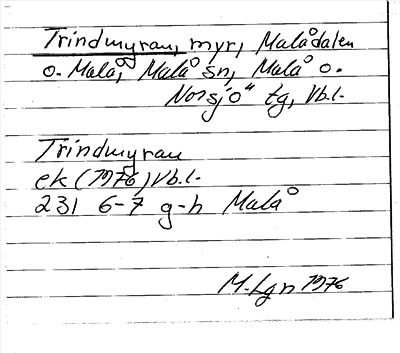 Trindmyran, myr, Malådalen
o. Malå, Malå sn, Malå o.
Norsjö tg, Vb.l.
Trindmyran
ek (1976) Vb.l.
231 6-7 g-h Malå
M. Lgn 1976